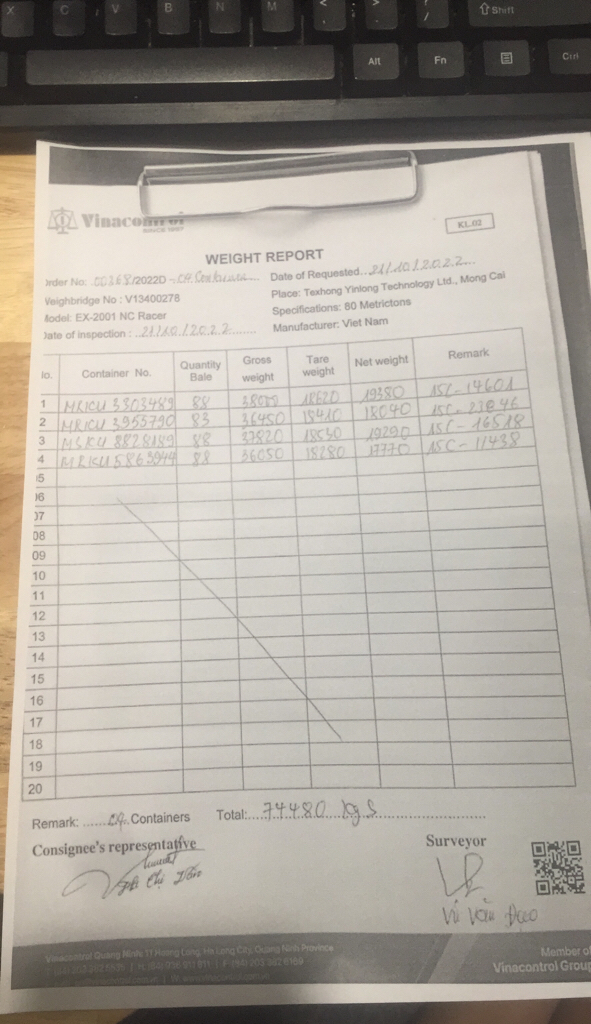 X C V B N M < , > . ? / ⇧ Shift
Alt Fn Ctrl
Vinacontrol
SINCE 1957
KL.02
WEIGHT REPORT
Order No: 00368/2022D - 04 Containers Date of Requested 21/10/2022
Weighbridge No : V13400278 Place: Texhong Yinlong Technology Ltd., Mong Cai
Model: EX-2001 NC Racer Specifications: 80 Metrictons
Date of inspection : 21/10/2022 Manufacturer: Viet Nam
No. Container No. Quantity Bale Gross weight Tare weight Net weight Remark
1 MRKU 3303489 88 38000 18620 19380 15C-14601
2 MRKU 3953790 83 36450 18410 18040 15C-23846
3 MSKU 8828189 88 37820 18530 19290 15C-16518
4 MRKU 5863944 88 36050 18280 17770 15C-11438
05
06
07
08
09
10
11
12
13
14
15
16
17
18
19
20
Remark: ...... 04 Containers Total: 74480 kgs
Consignee's representative Surveyor
Vũ Văn Đạo
Vinacontrol Quang Ninh: 11 Hoang Long, Ha Long City, Quang Ninh Province
Member of
Vinacontrol Group